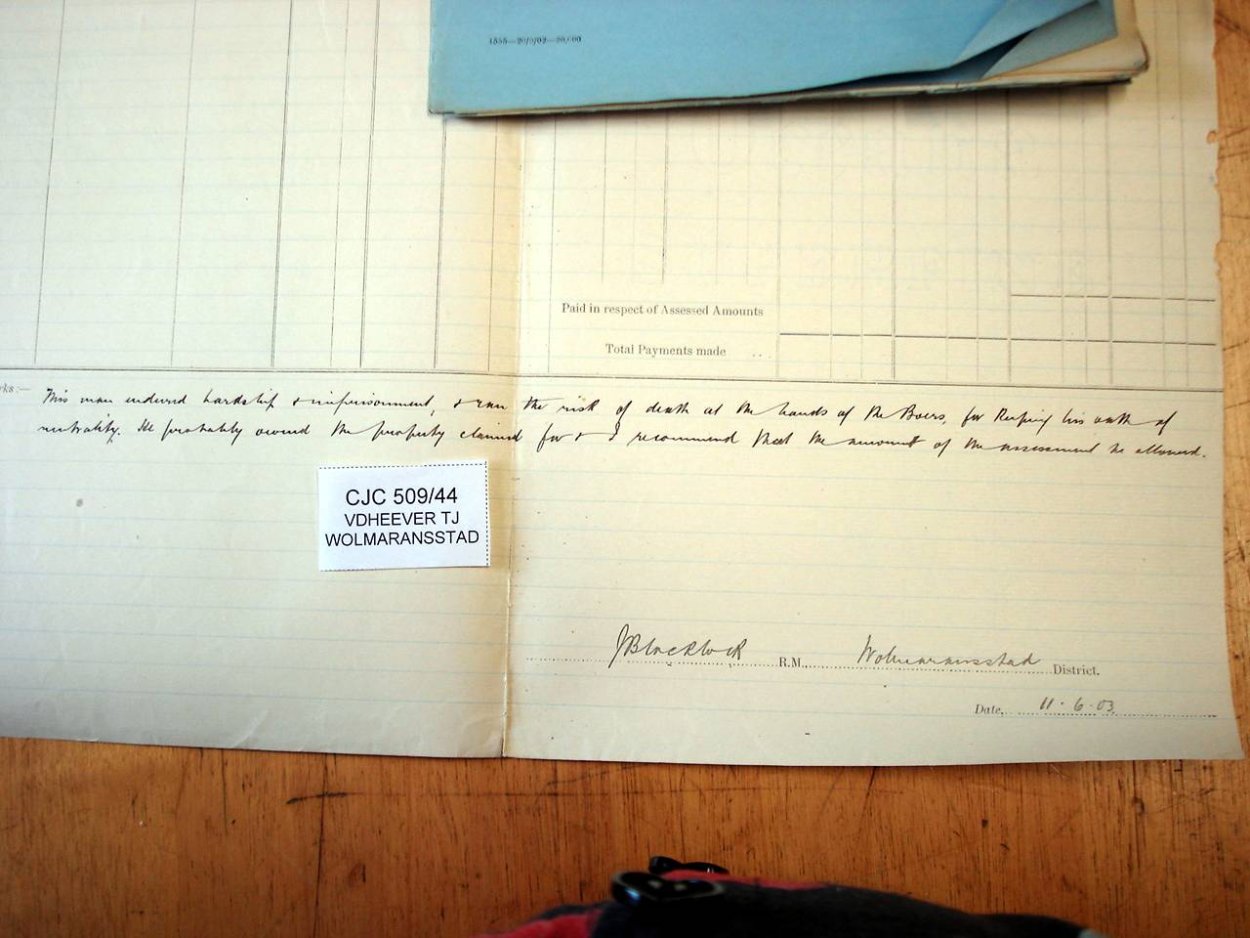 1555—20/5/03—20,000
Paid in respect of Assessed Amounts
Total Payments made ...
rks :— This man endured hardship & imprisonment, & ran the risk of death at the hands of the Boers, for keeping his oath of
neutrality. He probably owned the property claimed for & I recommend that the amount of the assessment be allowed.
CJC 509/44
VDHEEVER TJ
WOLMARANSSTAD
JBlacklock R.M. Wolmaransstad District.
Date, 11-6-03